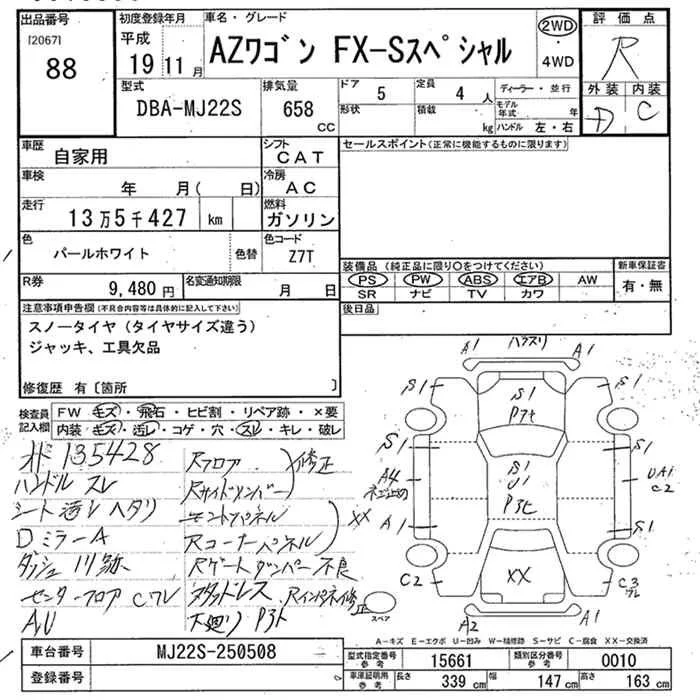 出品番号
[2067]
88
初度登録年月
平成
19 11月
車名・グレード
AZワゴン FX-Sスペシャル
2WD
・
4WD
評価点
R
外装 内装
D C
型式
DBA-MJ22S
排気量
658
CC
ドア
5
形状
定員
4人
積載
kg
ディーラー・並行
モデル年式 年
ハンドル 左・右
車歴
自家用
シフト
CAT
車検
年 月( 日)
冷房
AC
走行
13万5千427 km
燃料
ガソリン
色
パールホワイト
色替
色コード
Z7T
R券
9,480円
名変通知期限
月 日
セールスポイント(正常に機能するものに限ります)
装備品(純正品に限り○をつけてください)
PS PW ABS エアB AW
SR ナビ TV カワ
新車保証書
有・無
後日品
注意事項申告欄(不具合内容等は具体的に記入して下さい)
スノータイヤ(タイヤサイズ違う)
ジャッキ、工具欠品
修復歴 有〔箇所 〕
検査員記入欄
FW キズ・飛石・ヒビ割・リペア跡・×要
内装・キズ・汚レ・コゲ・穴・スレ・キレ・破レ
135428
ハンドル スレ
シート 汚レ ヘタリ
DミラーA
ダッシュ
センターフロア Cワレ
A,U
Rフロア
Rサイドメンバー
エンドパネル
Rコーナーパネル
修正
Rゲートダンパー不良
スタットドレス
Rインパネ修正
下廻り
A1 A1
S1 S1
S1
S1 S1
S1
U1
A4
ネコ止め
UA1
C2
XX A1 S1
C2 XX C3
A2 A1
スペア
A-キズ E-エクボ U-凹み W-補修跡 S-サビ C-腐食 XX-交換済
車台番号
MJ22S-250508
登録番号
型式指定番号
参考
15661
類別区分番号
参考
0010
車庫証明用
参考
長さ 339 cm 幅 147 cm 高さ 163 cm